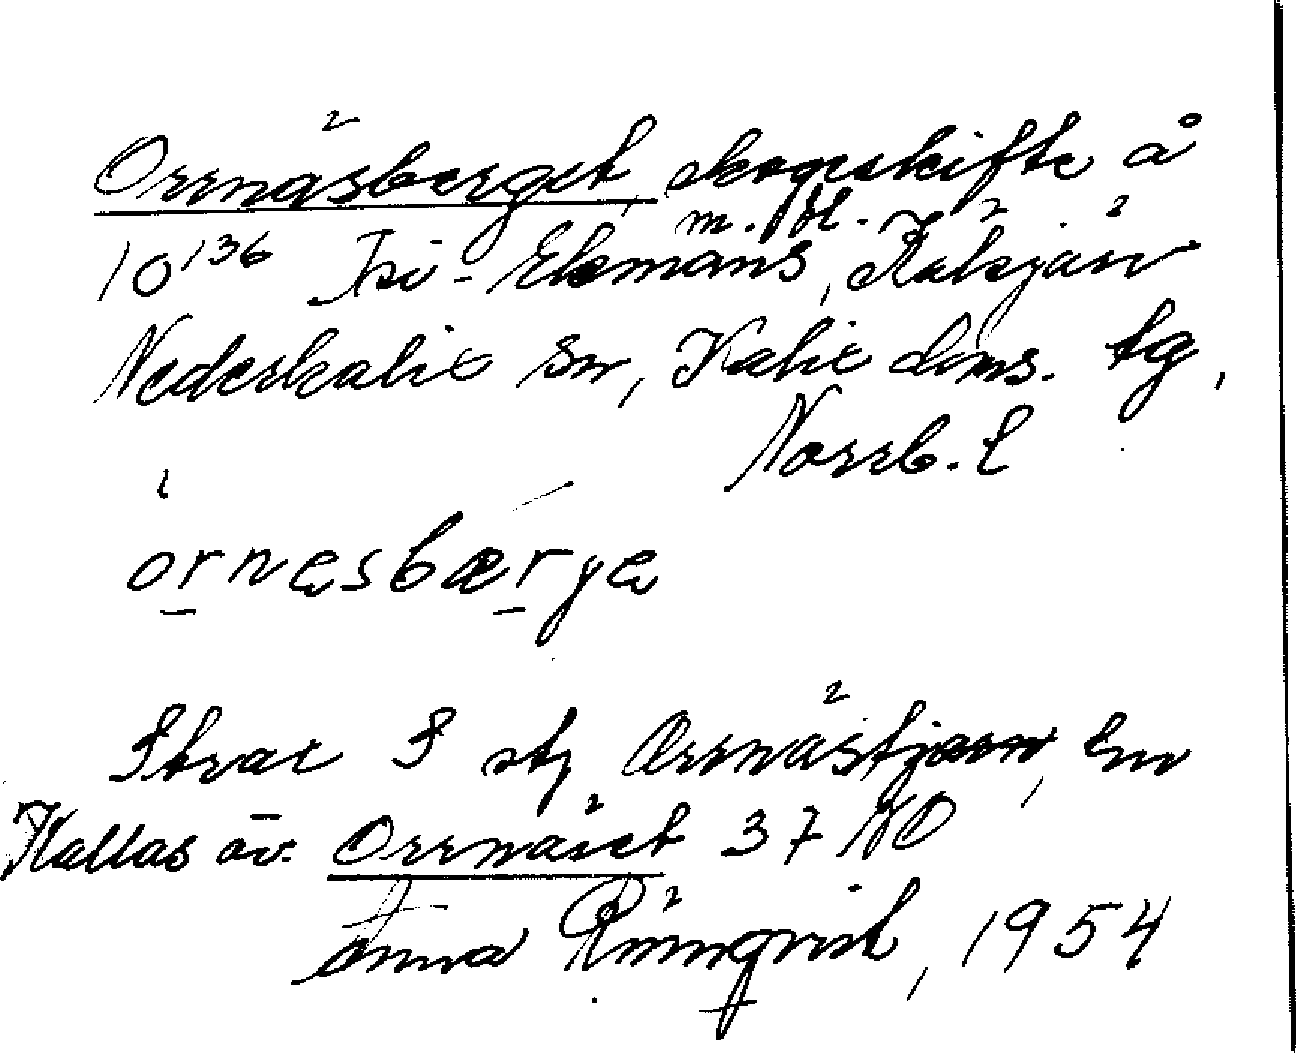 Orrnäsberget skogsskifte å
m. fl.
10¹³⁶ Isi-Ekmäns, Räksjärv
Nederkalix sn, Kalix doms. tg,
Norrb. l
ornesbærje
Strax S
Orrnästjärn, sn
Kallas äv. Orrnäset 37 NO
Anna Rönnqvist, 1954